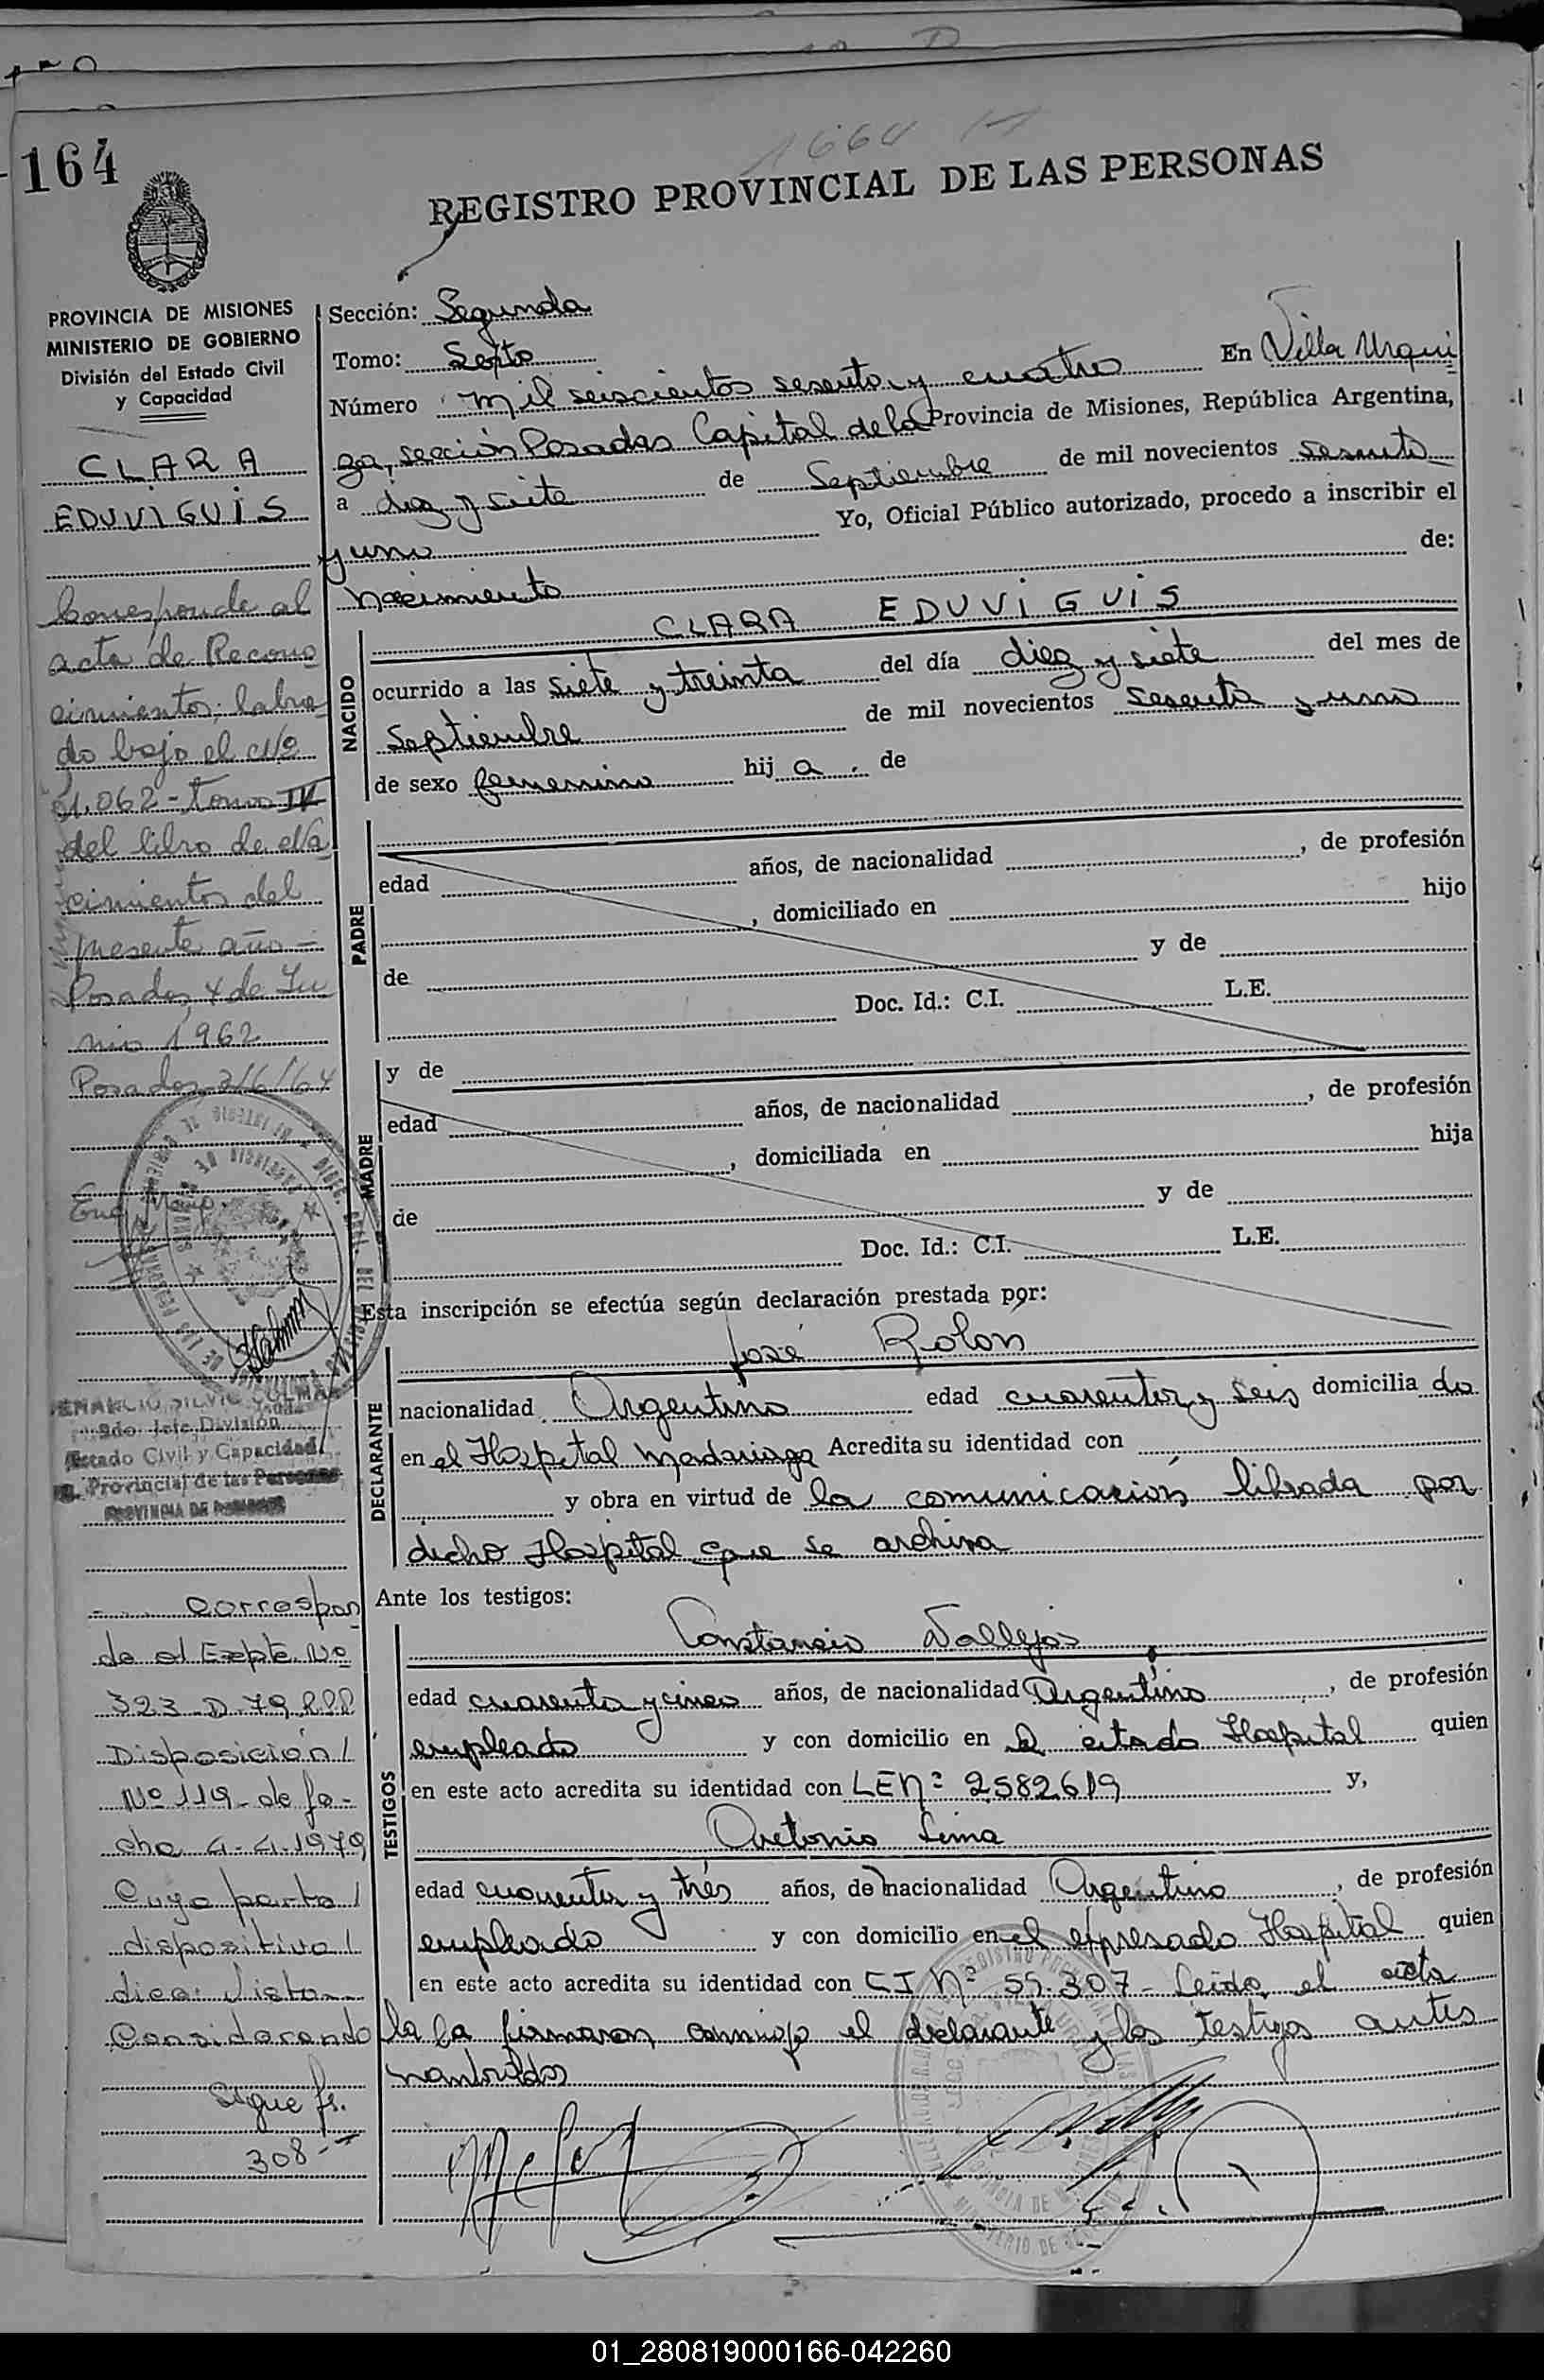 164
1664
REGISTRO PROVINCIAL DE LAS PERSONAS
PROVINCIA DE MISIONES
MINISTERIO DE GOBIERNO
División del Estado Civil
y Capacidad
CLARA
EDUVIGUIS
Corresponde al
acta de Recono
cimiento, labra
do bajo el Nº
1.062 - tomo IV
del libro de Na
cimientos del
presente año -
Posadas, 4 de Ju
nio 1962
Posadas 2/6/64
VENANCIO SILVIO COLMAN
2do. Jefe División
Estado Civil y Capacidad
Provincial de las Personas
PROVINCIA DE MISIONES
- Correspon
de al Expte. Nº
323-D-79 RPP
Disposición/
Nº 119- de fe-
cha 4-4-1979
Cuya parte/
dispositiva/
dice: Visto--
Considerando
Sigue fs.
308--
Sección: Segunda
Tomo: Septo
Número mil seiscientos sesenta y cuatro En Villa Urqui
za, sección Posadas Capital de la Provincia de Misiones, República Argentina,
a diez y siete de Septiembre de mil novecientos sesenta
y uno Yo, Oficial Público autorizado, procedo a inscribir el
nacimiento de:
NACIDO
CLARA EDUVIGUIS
ocurrido a las siete y treinta del día diez y siete del mes de
Septiembre de mil novecientos sesenta y uno
de sexo femenino hij a. de
PADRE
edad años, de nacionalidad , de profesión
, domiciliado en hijo
de y de
Doc. Id.: C.I. L.E.
MADRE
y de
edad años, de nacionalidad , de profesión
, domiciliada en hija
de y de
Doc. Id.: C.I. L.E.
Esta inscripción se efectúa según declaración prestada por:
DECLARANTE
José Rolon
nacionalidad Argentino edad cuarenta y seis domicilia do
en el Hospital Madariaga Acredita su identidad con
y obra en virtud de la comunicación librada por
dicho Hospital que se archiva
Ante los testigos:
TESTIGOS
Constancio Vallejos
edad cuarenta y cinco años, de nacionalidad Argentino , de profesión
empleado y con domicilio en el citado Hospital quien
en este acto acredita su identidad con LE Nº 2582619 y,
Antonio Lima
edad cuarenta y tres años, de nacionalidad Argentino , de profesión
empleado y con domicilio en el expresado Hospital quien
en este acto acredita su identidad con CI Nº 55.307- Leída el acta
la firmaron conmigo el declarante y los testigos antes
nombrados
01_280819000166-042260